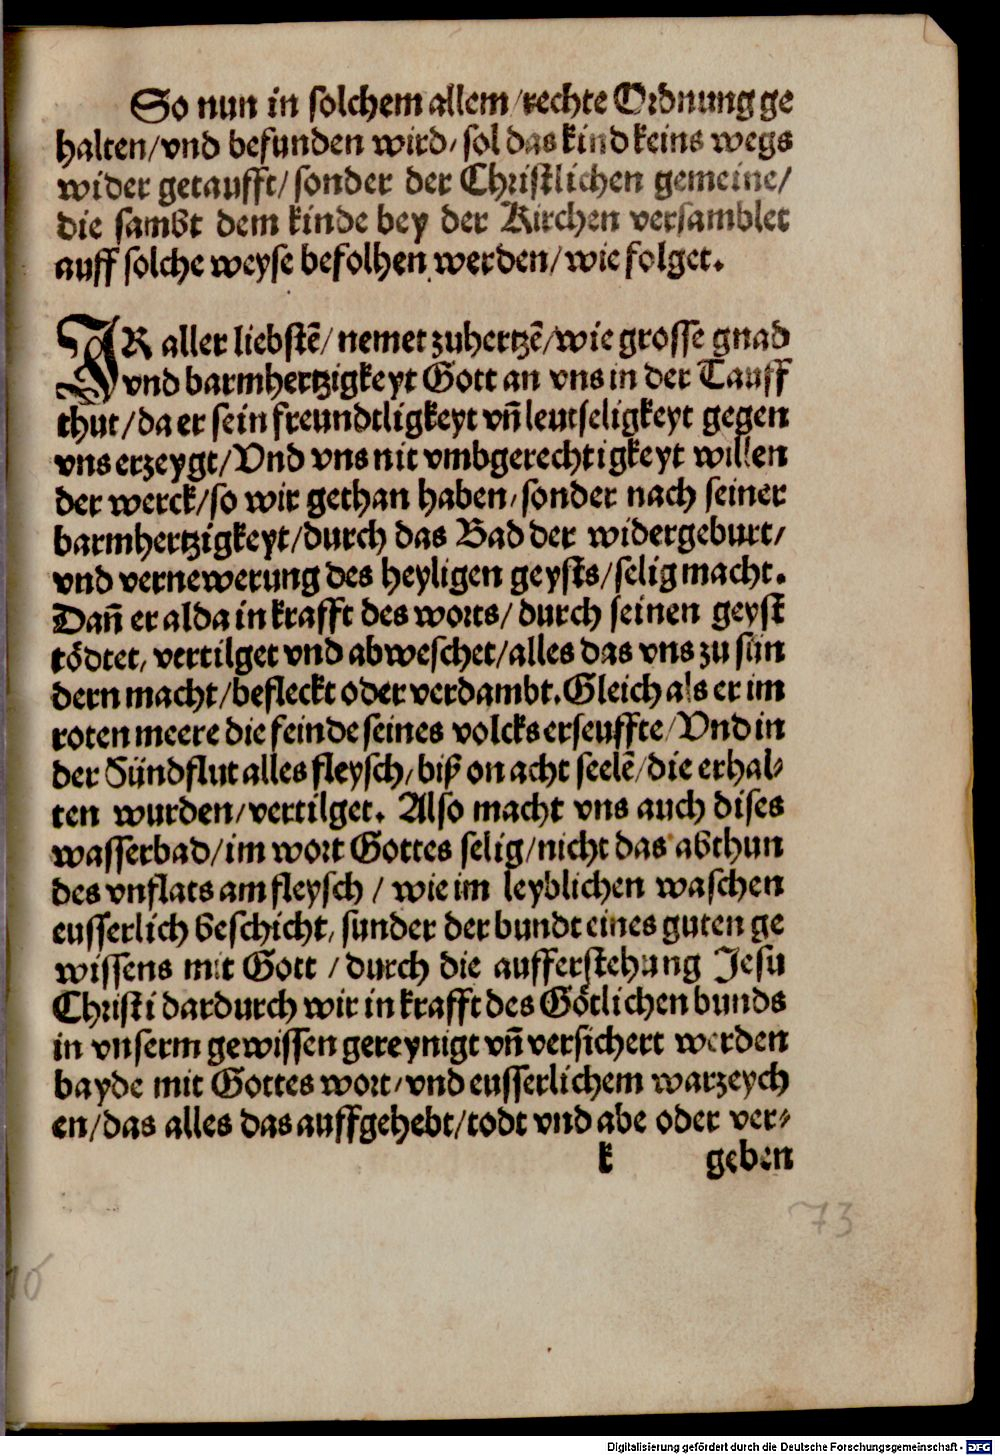 So nun in solchem allem/rechte Ordnung ge
halten/vnd befunden wird/sol das kind keins wegs
wider getaufft/sonder der Christlichen gemeine/
die sambt dem kinde bey der Kirchen versamblet
auff solche weyse befolhen werden/wie folget.
IR aller liebstē/nemet zuhertzē/wie grosse gnad
vnd barmhertzigkeyt Gott an vns in der Tauff
thut/da er sein freundtligkeyt vñ leutseligkeyt gegen
vns erzeygt/Vnd vns nit vmb gerechtigkeyt willen
der werck/so wir gethan haben/sonder nach seiner
barmhertzigkeyt/durch das Bad der widergeburt/
vnd vernewerung des heyligen geysts/selig macht.
Dañ er alda in krafft des worts/durch seinen geyst
tödtet/vertilget vnd abweschet/alles das vns zu sün
dern macht/befleckt oder verdambt. Gleich als er im
roten meere die feinde seines volcks erseuffte/Vnd in
der Sündflut alles fleysch/biß on acht seelē/die erhal-
ten wurden/vertilget. Also macht vns auch dises
wasserbad/im wort Gottes selig/nicht das abthun
des vnflats am fleysch/wie im leyblichen waschen
eusserlich beschicht/sunder der bundt eines guten ge
wissens mit Gott/durch die aufferstehung Jesu
Christi dardurch wir in krafft des Götlichen bunds
in vnserm gewissen gereynigt vñ versichert werden
bayde mit Gottes wort/vnd eusserlichem warzeych
en/das alles das auffgehebt/todt vnd abe oder ver-
k geben
73
16
Digitalisierung gefördert durch die Deutsche Forschungsgemeinschaft - DFG